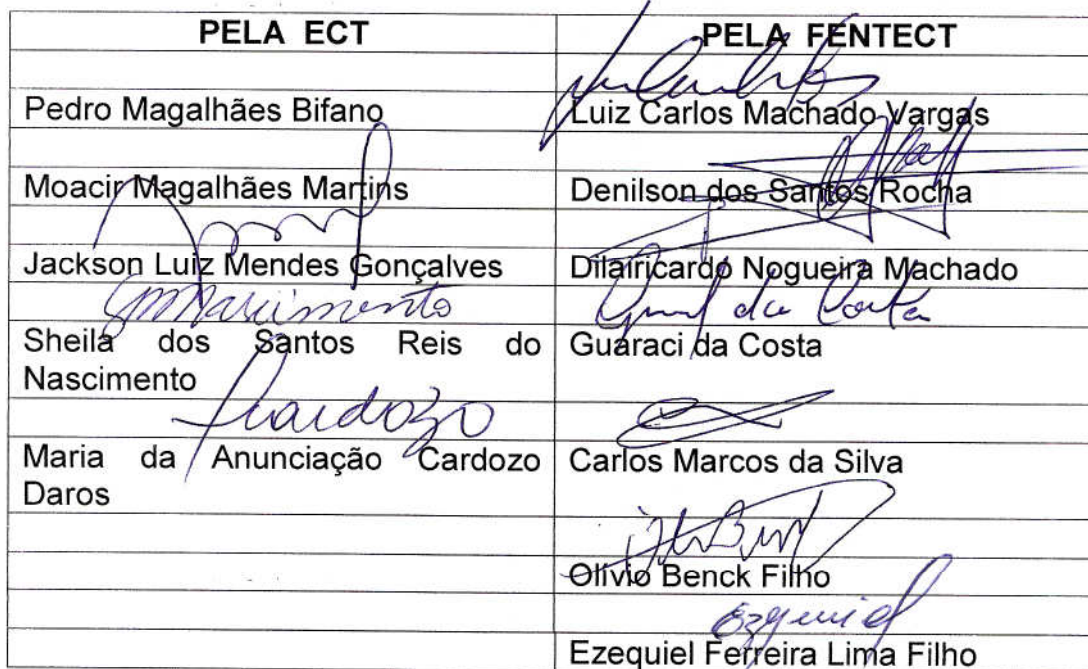 PELA ECT
PELA FENTECT
Pedro Magalhães Bifano
Luiz Carlos Machado Vargas
Moacir Magalhães Martins
Denilson dos Santos Rocha
Jackson Luiz Mendes Gonçalves
Dilairicardo Nogueira Machado
da Costa
Sheila dos Santos Reis do
Nascimento
Guaraci da Costa
Cardozo
Maria da Anunciação Cardozo
Daros
Carlos Marcos da Silva
Olívio Benck Filho
Ezequiel
Ezequiel Ferreira Lima Filho